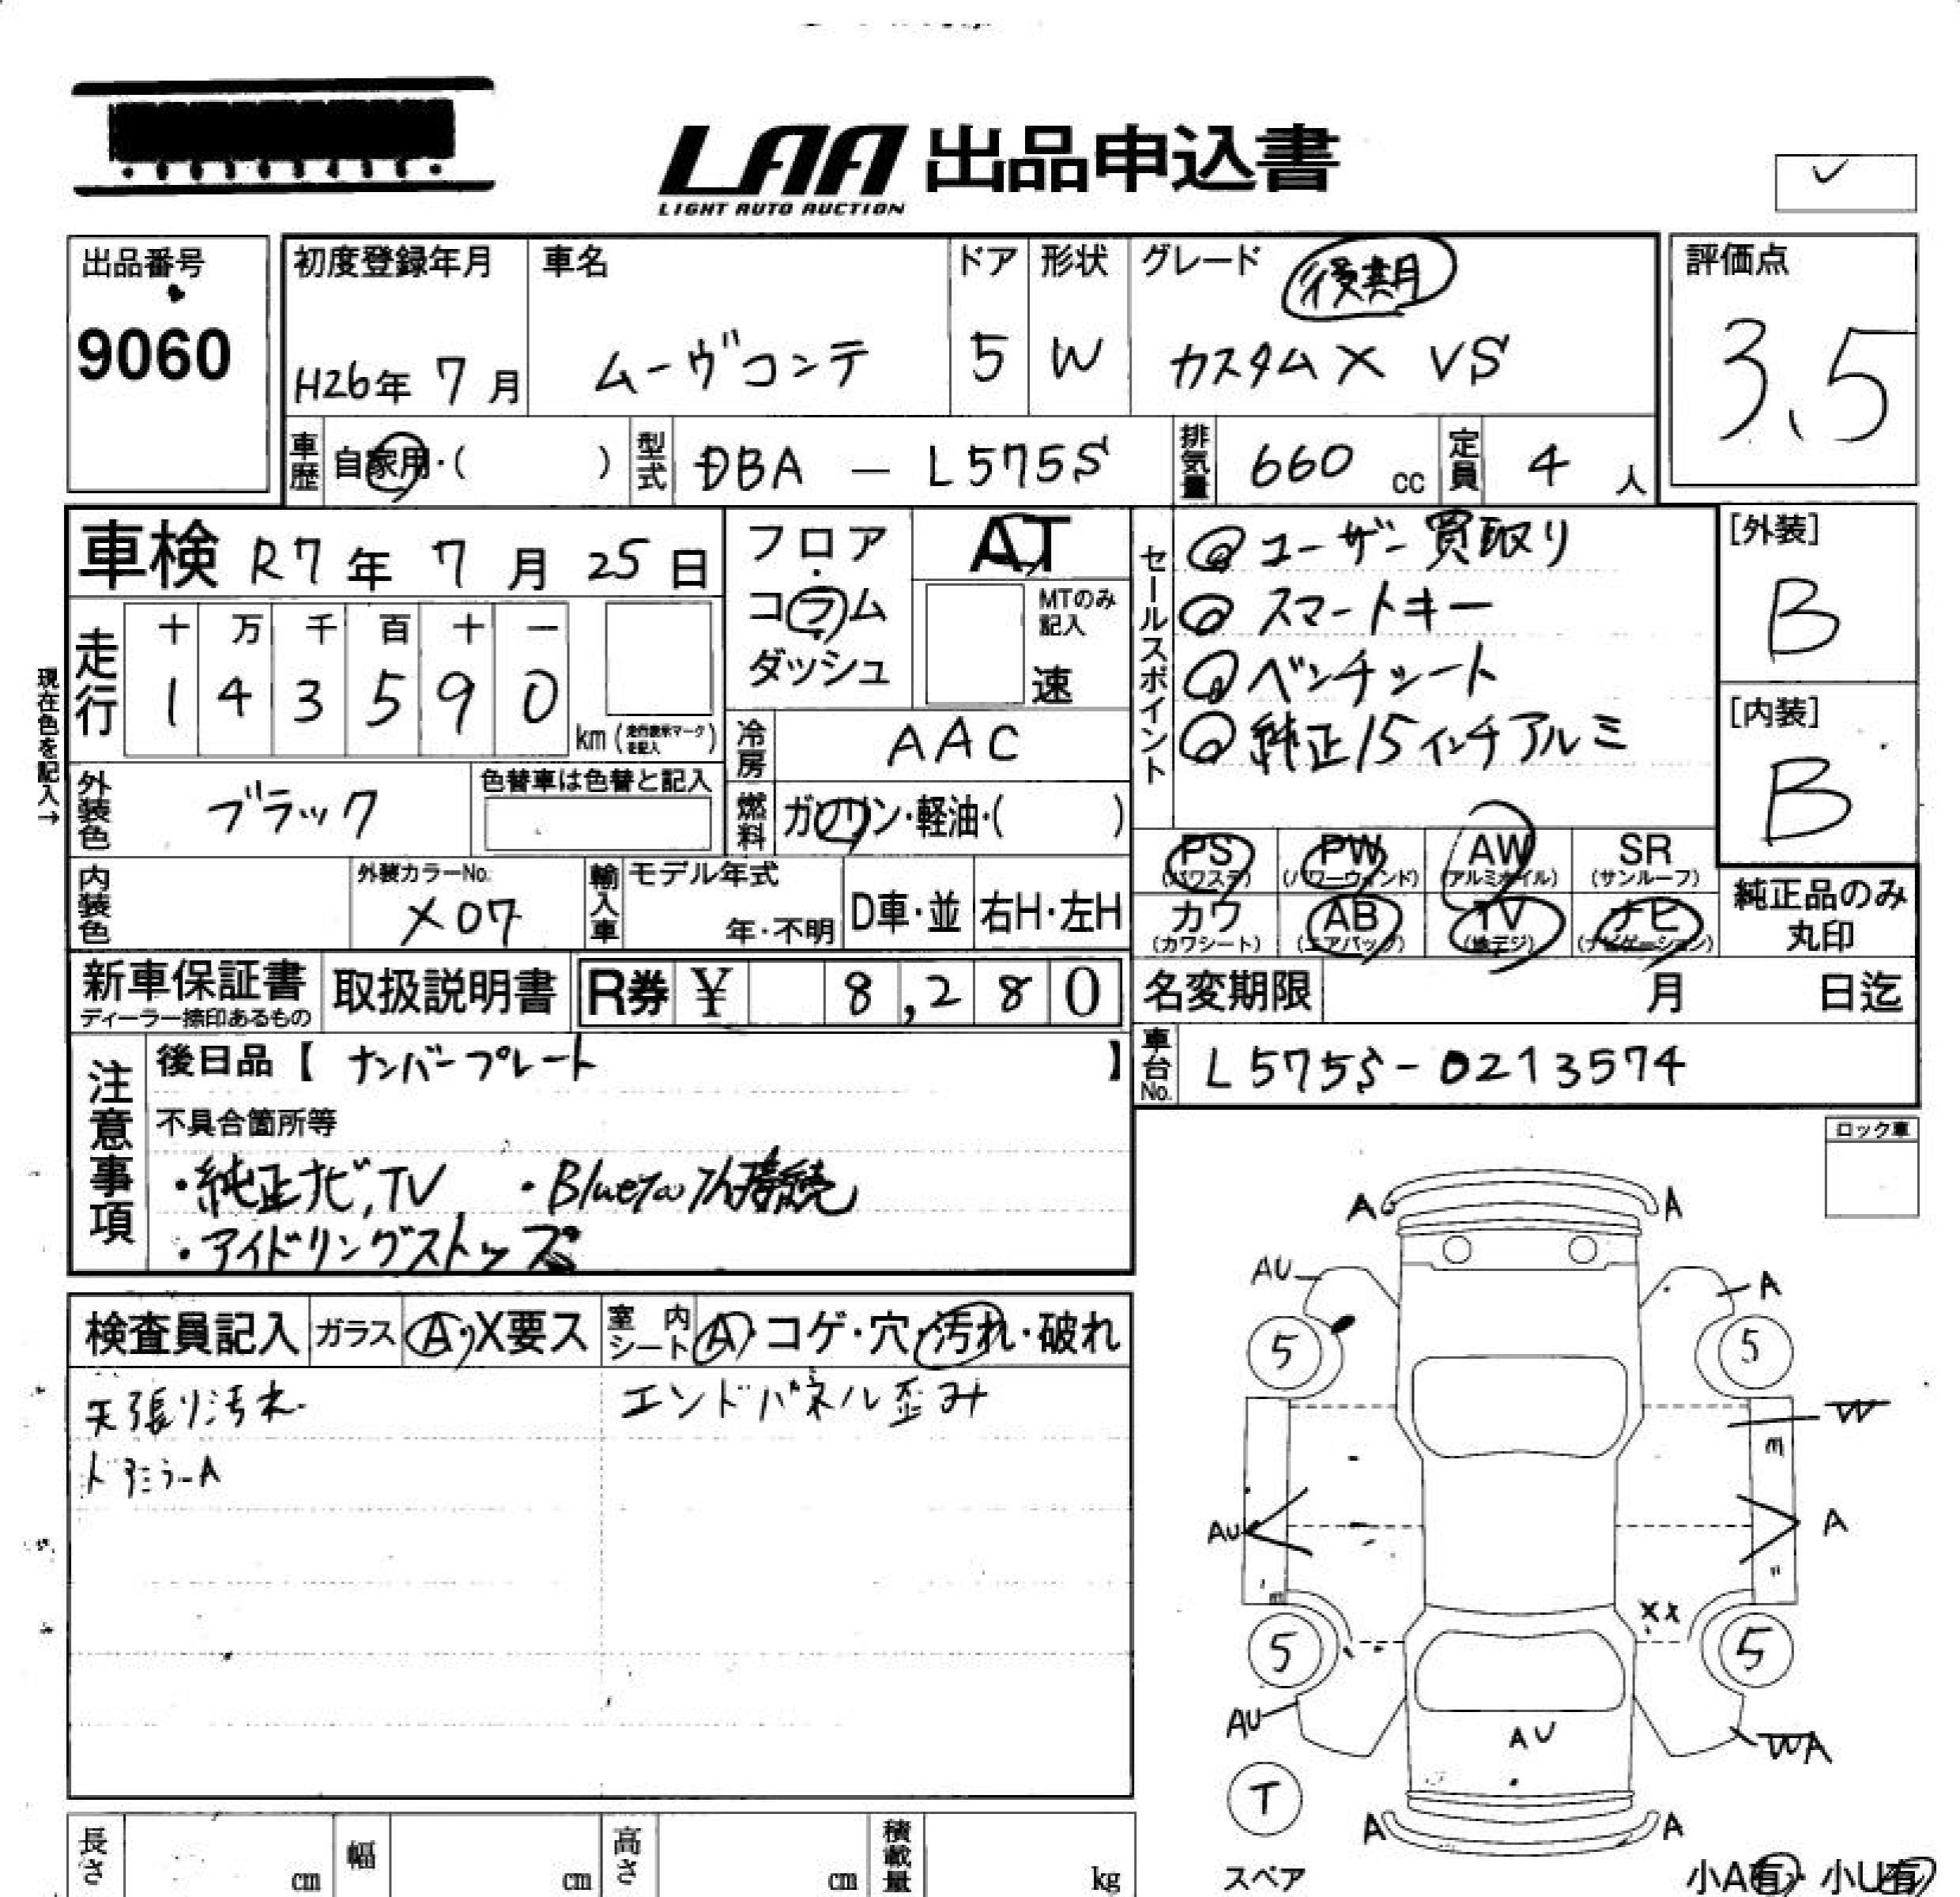 LAA 出品申込書
LIGHT AUTO AUCTION
出品番号
9060
初度登録年月
H26年 7月
車名
ムーヴコンテ
ドア
5
形状
W
グレード
後期
カスタムX VS
評価点
3.5
車歴 自家用・( )
型式 DBA - L575S
排気量 660 cc
定員 4 人
車検 R7年 7月 25日
走行
十 万 千 百 十 一
1 4 3 5 9 0
km (走行表示マークを記入)
現在色を記入→
外装色 ブラック
色替車は色替と記入
内装色
外装カラーNo.
X07
フロア・コラム・ダッシュ
AT
MTのみ記入
速
冷房 AAC
燃料 ガソリン・軽油・( )
輸入車
モデル年式
年・不明
D車・並
右H・左H
セールスポイント
◎ユーザー買取り
◎スマートキー
◎ベンチシート
◎純正15インチアルミ
[外装]
B
[内装]
B
PS (パワステ)
PW (パワーウィンド)
AW (アルミホイル)
SR (サンルーフ)
カワ (カワシート)
AB (エアバック)
TV (地デジ)
ナビ (ナビゲーション)
純正品のみ
丸印
新車保証書
ディーラー捺印あるもの
取扱説明書
R券 ¥ 8,280
名変期限 月 日迄
車台No. L575S-0213574
注意事項
後日品【 ナンバープレート 】
不具合箇所等
・純正ナビ,TV ・Bluetooth接続
・アイドリングストップ
ロック車
検査員記入
ガラス A・X要ス
室内シート A・コゲ・穴・汚れ・破れ
天張り汚れ
ドアミラーA
エンドパネル歪み
A A
AU A
5 5
W
AU A
XX
5 5
AU WA
AU
T
スペア
A A
長さ cm
幅 cm
高さ cm
積載量 kg
小A有・小U有